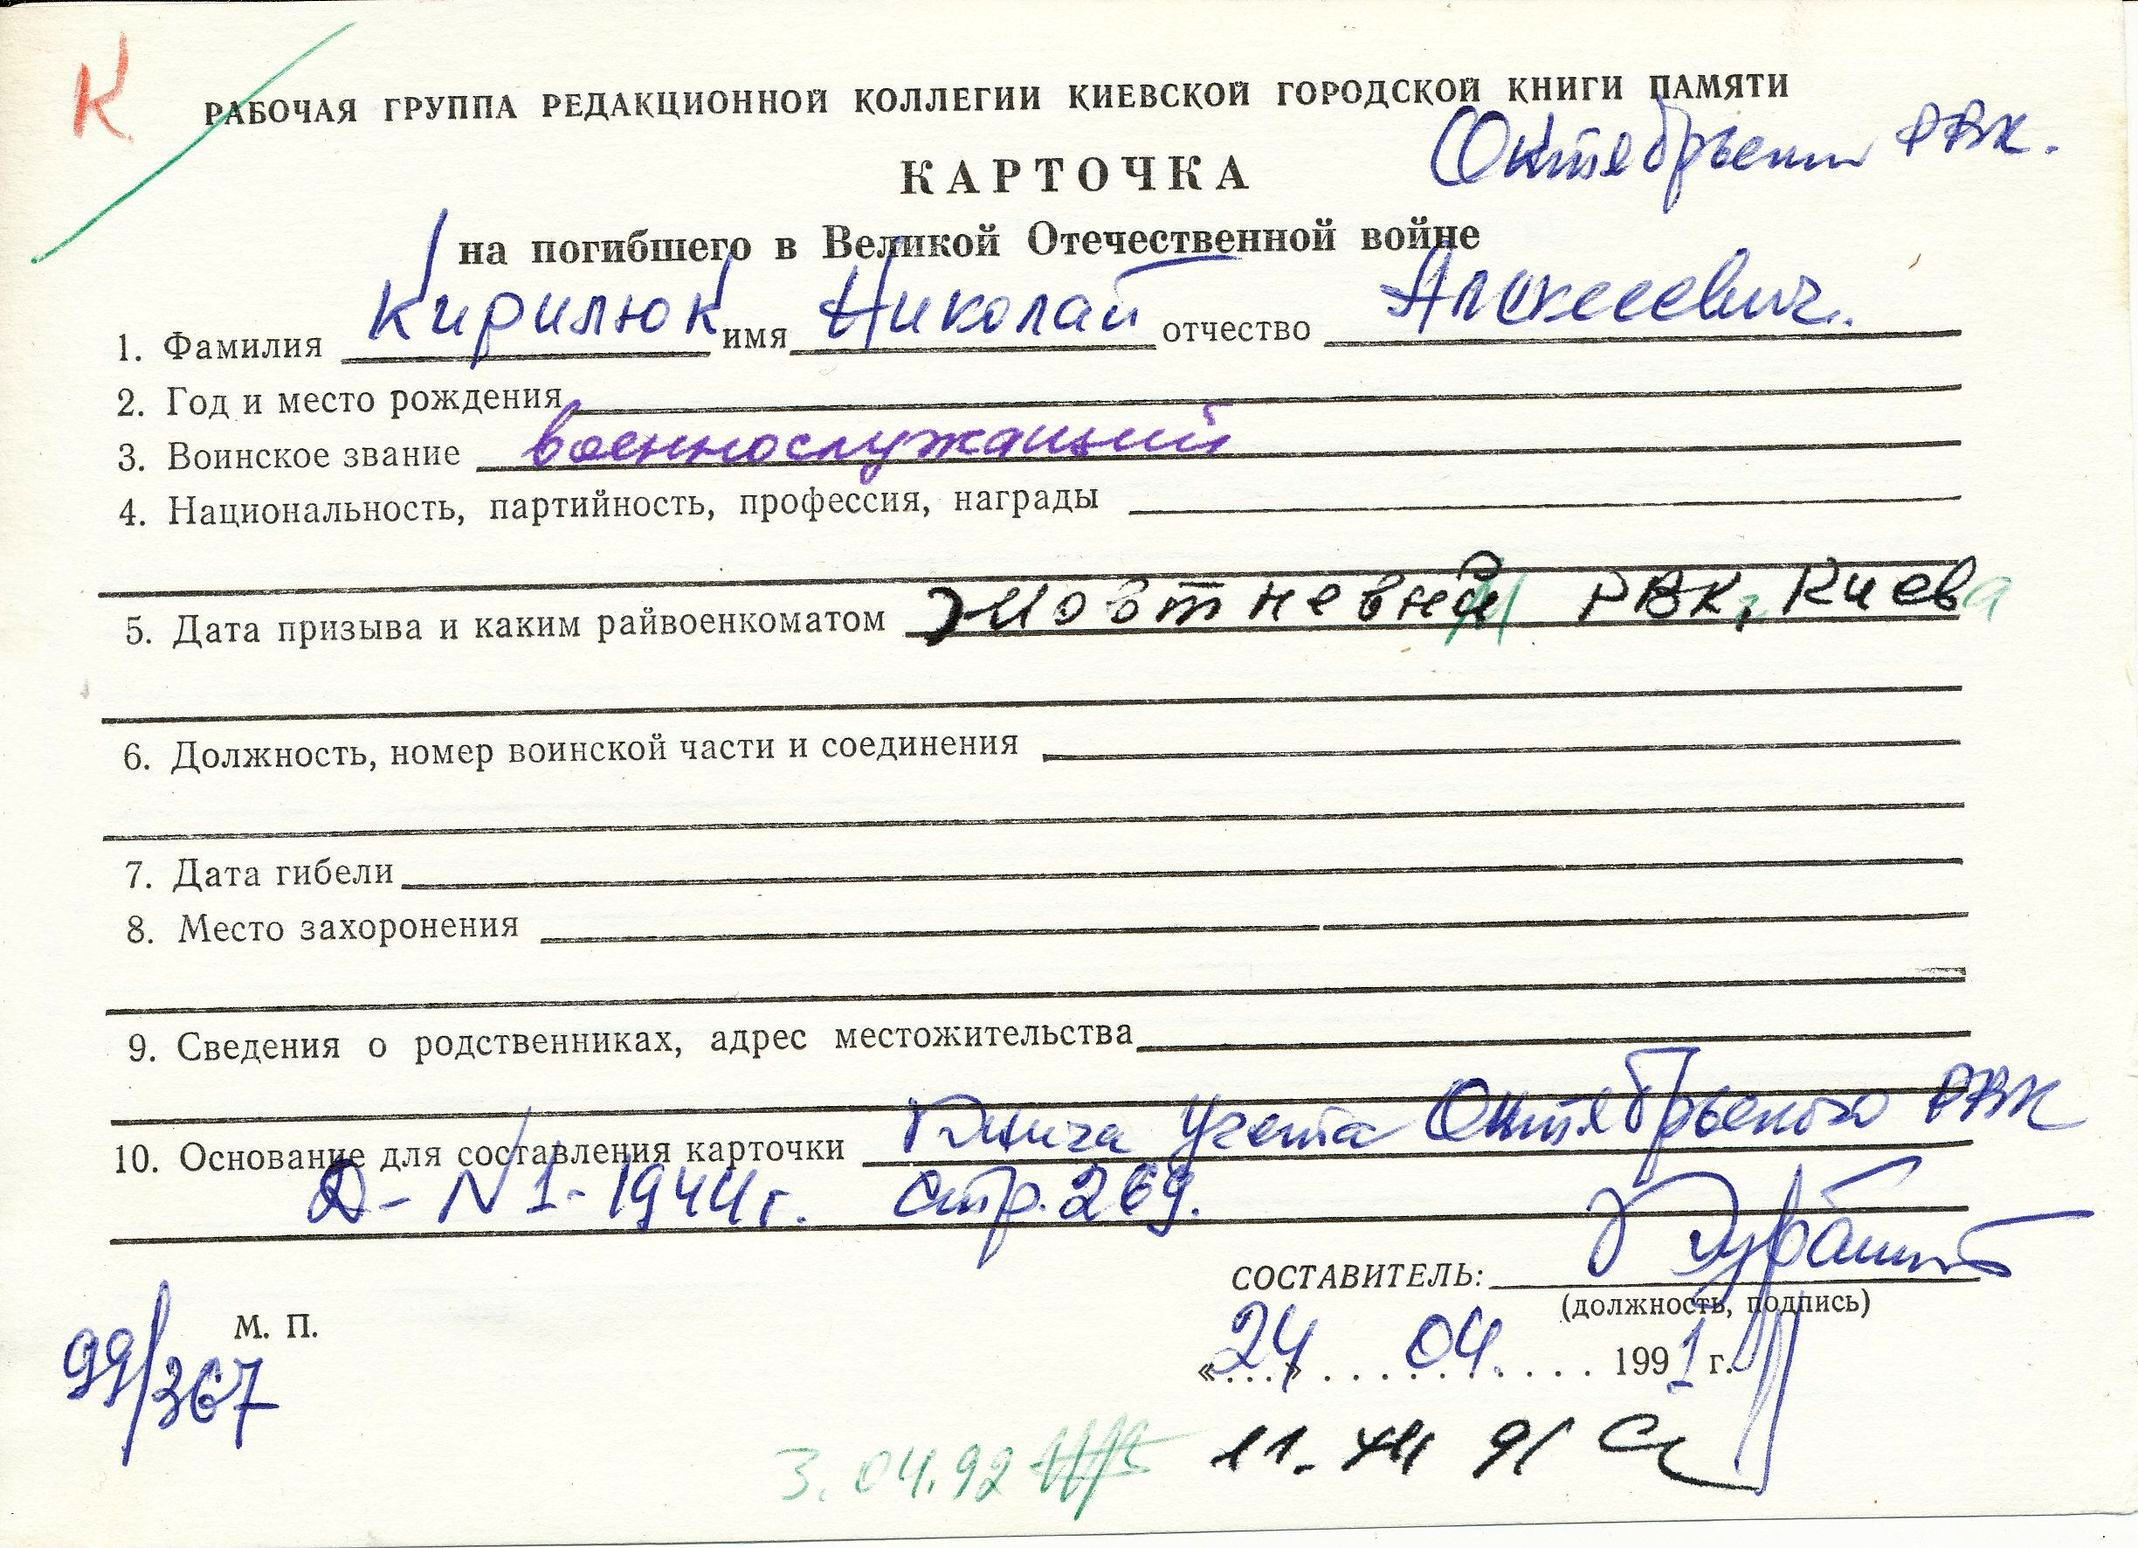 К
РАБОЧАЯ ГРУППА РЕДАКЦИОННОЙ КОЛЛЕГИИ КИЕВСКОЙ ГОРОДСКОЙ КНИГИ ПАМЯТИ
Октябрьский РВК.
КАРТОЧКА
на погибшего в Великой Отечественной войне
1. Фамилия Кирилюк имя Николай отчество Алексеевич.
2. Год и место рождения
3. Воинское звание военнослужащий
4. Национальность, партийность, профессия, награды
5. Дата призыва и каким райвоенкоматом Жовтневый РВК, г. Киева
6. Должность, номер воинской части и соединения
7. Дата гибели
8. Место захоронения
9. Сведения о родственниках, адрес местожительства
10. Основание для составления карточки Книга учета Октябрьского РВК
Д- N 1- 1944г. стр. 269.
СОСТАВИТЕЛЬ:
(должность, подпись)
М. П.
99/367
«24» 04. 1991 г.
3.04.92
11. XII 91